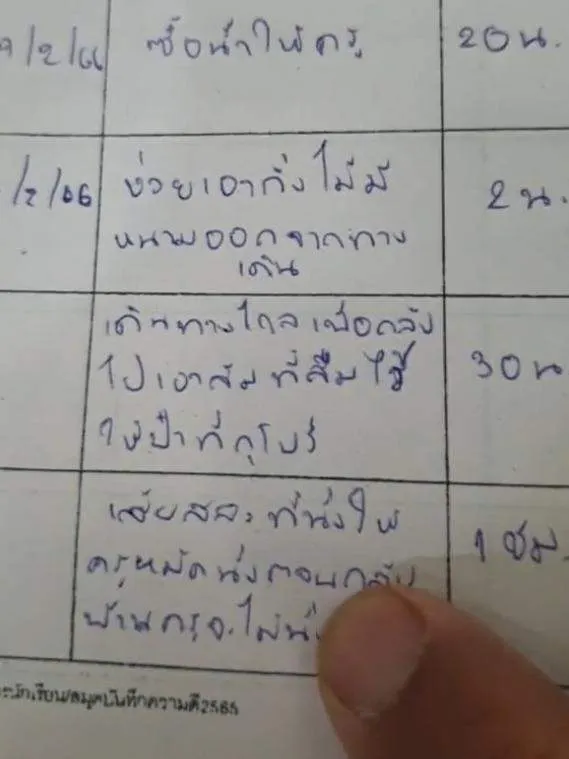 9/2/66 ซื้อน้ำให้ครู 20 น.
/2/66 ช่วยเอากิ่งไม้มี 2 น.
หนามออกจากทาง
เดิน
เดินทางไกลเพื่อกลับ
ไปเอาส้มที่ลืมไว้ 30 น
ให้ป้าที่กุโบร์
เสียสละที่นั่งให้ 1 ชม.
ครูหมัดนั่งตอนกลับ
บ้านครูจะได้นั่
นักเรียน/สมุดบันทึกความดี2565